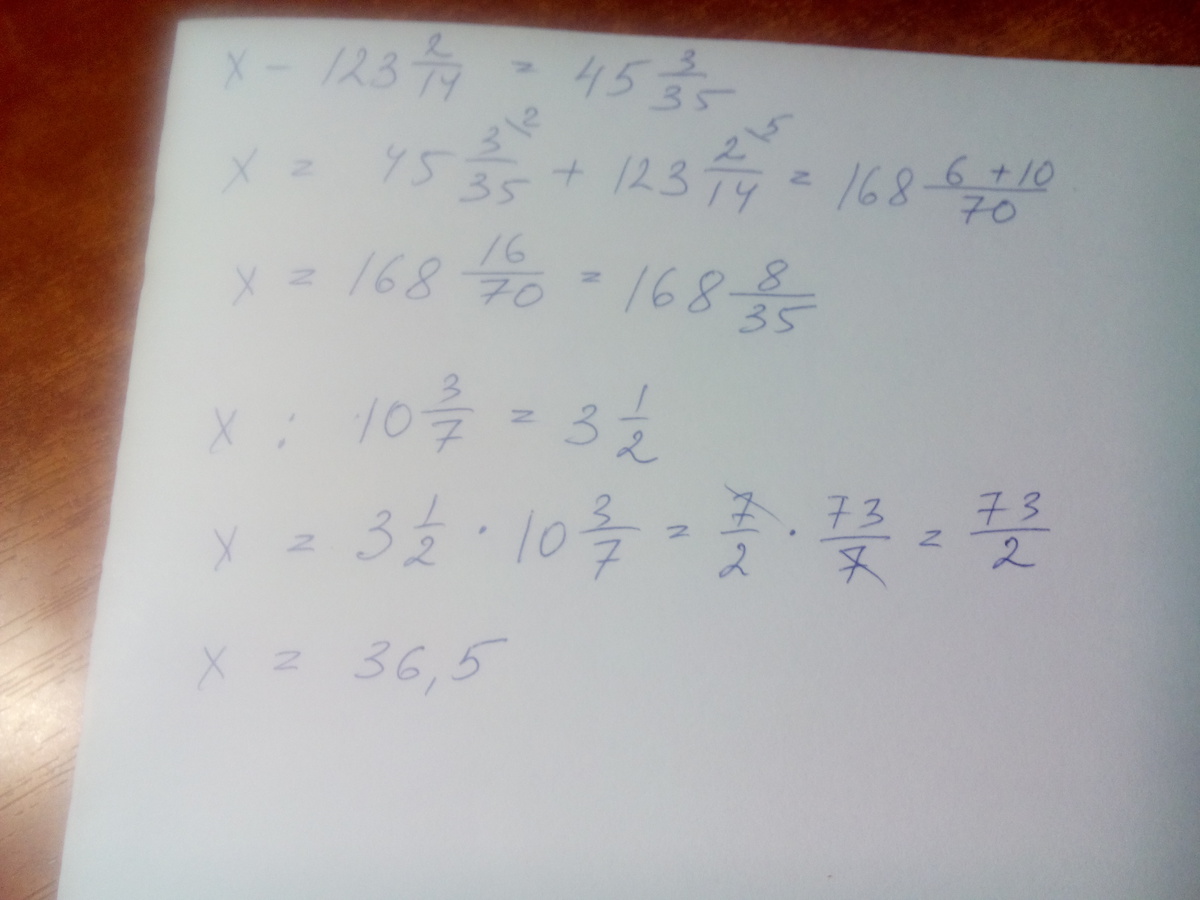 x - 123 2/14 = 45 3/35
x = 45 3/35 \2 + 123 2/14 \5 = 168 6+10/70
x = 168 16/70 = 168 8/35
x : 10 3/7 = 3 1/2
x = 3 1/2 · 10 3/7 = 7/2 · 73/7 = 73/2
x = 36,5